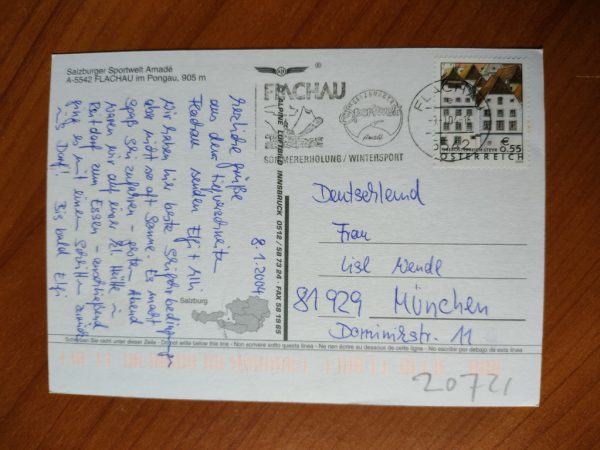 Salzburger Sportwelt Amadé
A-5542 FLACHAU im Pongau, 905 m
8.1.2004
Herzliche Grüße
aus dem tiefverschneiten
Flachau senden Elfi +
Wir haben hier beste Schibedingungen
aber nicht so oft Sonne. Es macht
Spaß Ski zufahren – gestern Abend
waren wir auf einer Hütte in
zum Essen – anschließend
ging es mit einem Schlitten zurück
ins Dorf! Bis bald Elfi
Salzburg
ALPINE LUFTBILD INNSBRUCK 0512/58 73 24 · FAX 58 19 65
®
FLACHAU
Sportwelt
Amadé
SOMMERERHOLUNG / WINTERSPORT
FLACHAU
€
0.55
ÖSTERREICH
Deutschland
Frau
Lisl Wende
81929 München
Dominikstr. 11
Schreiben Sie nicht unter dieser Zeile - Do not write below this line - Non scrivere sotto questa linea - Ne rien écrire au dessous de cette ligne - No escribir por debajo de esta linea